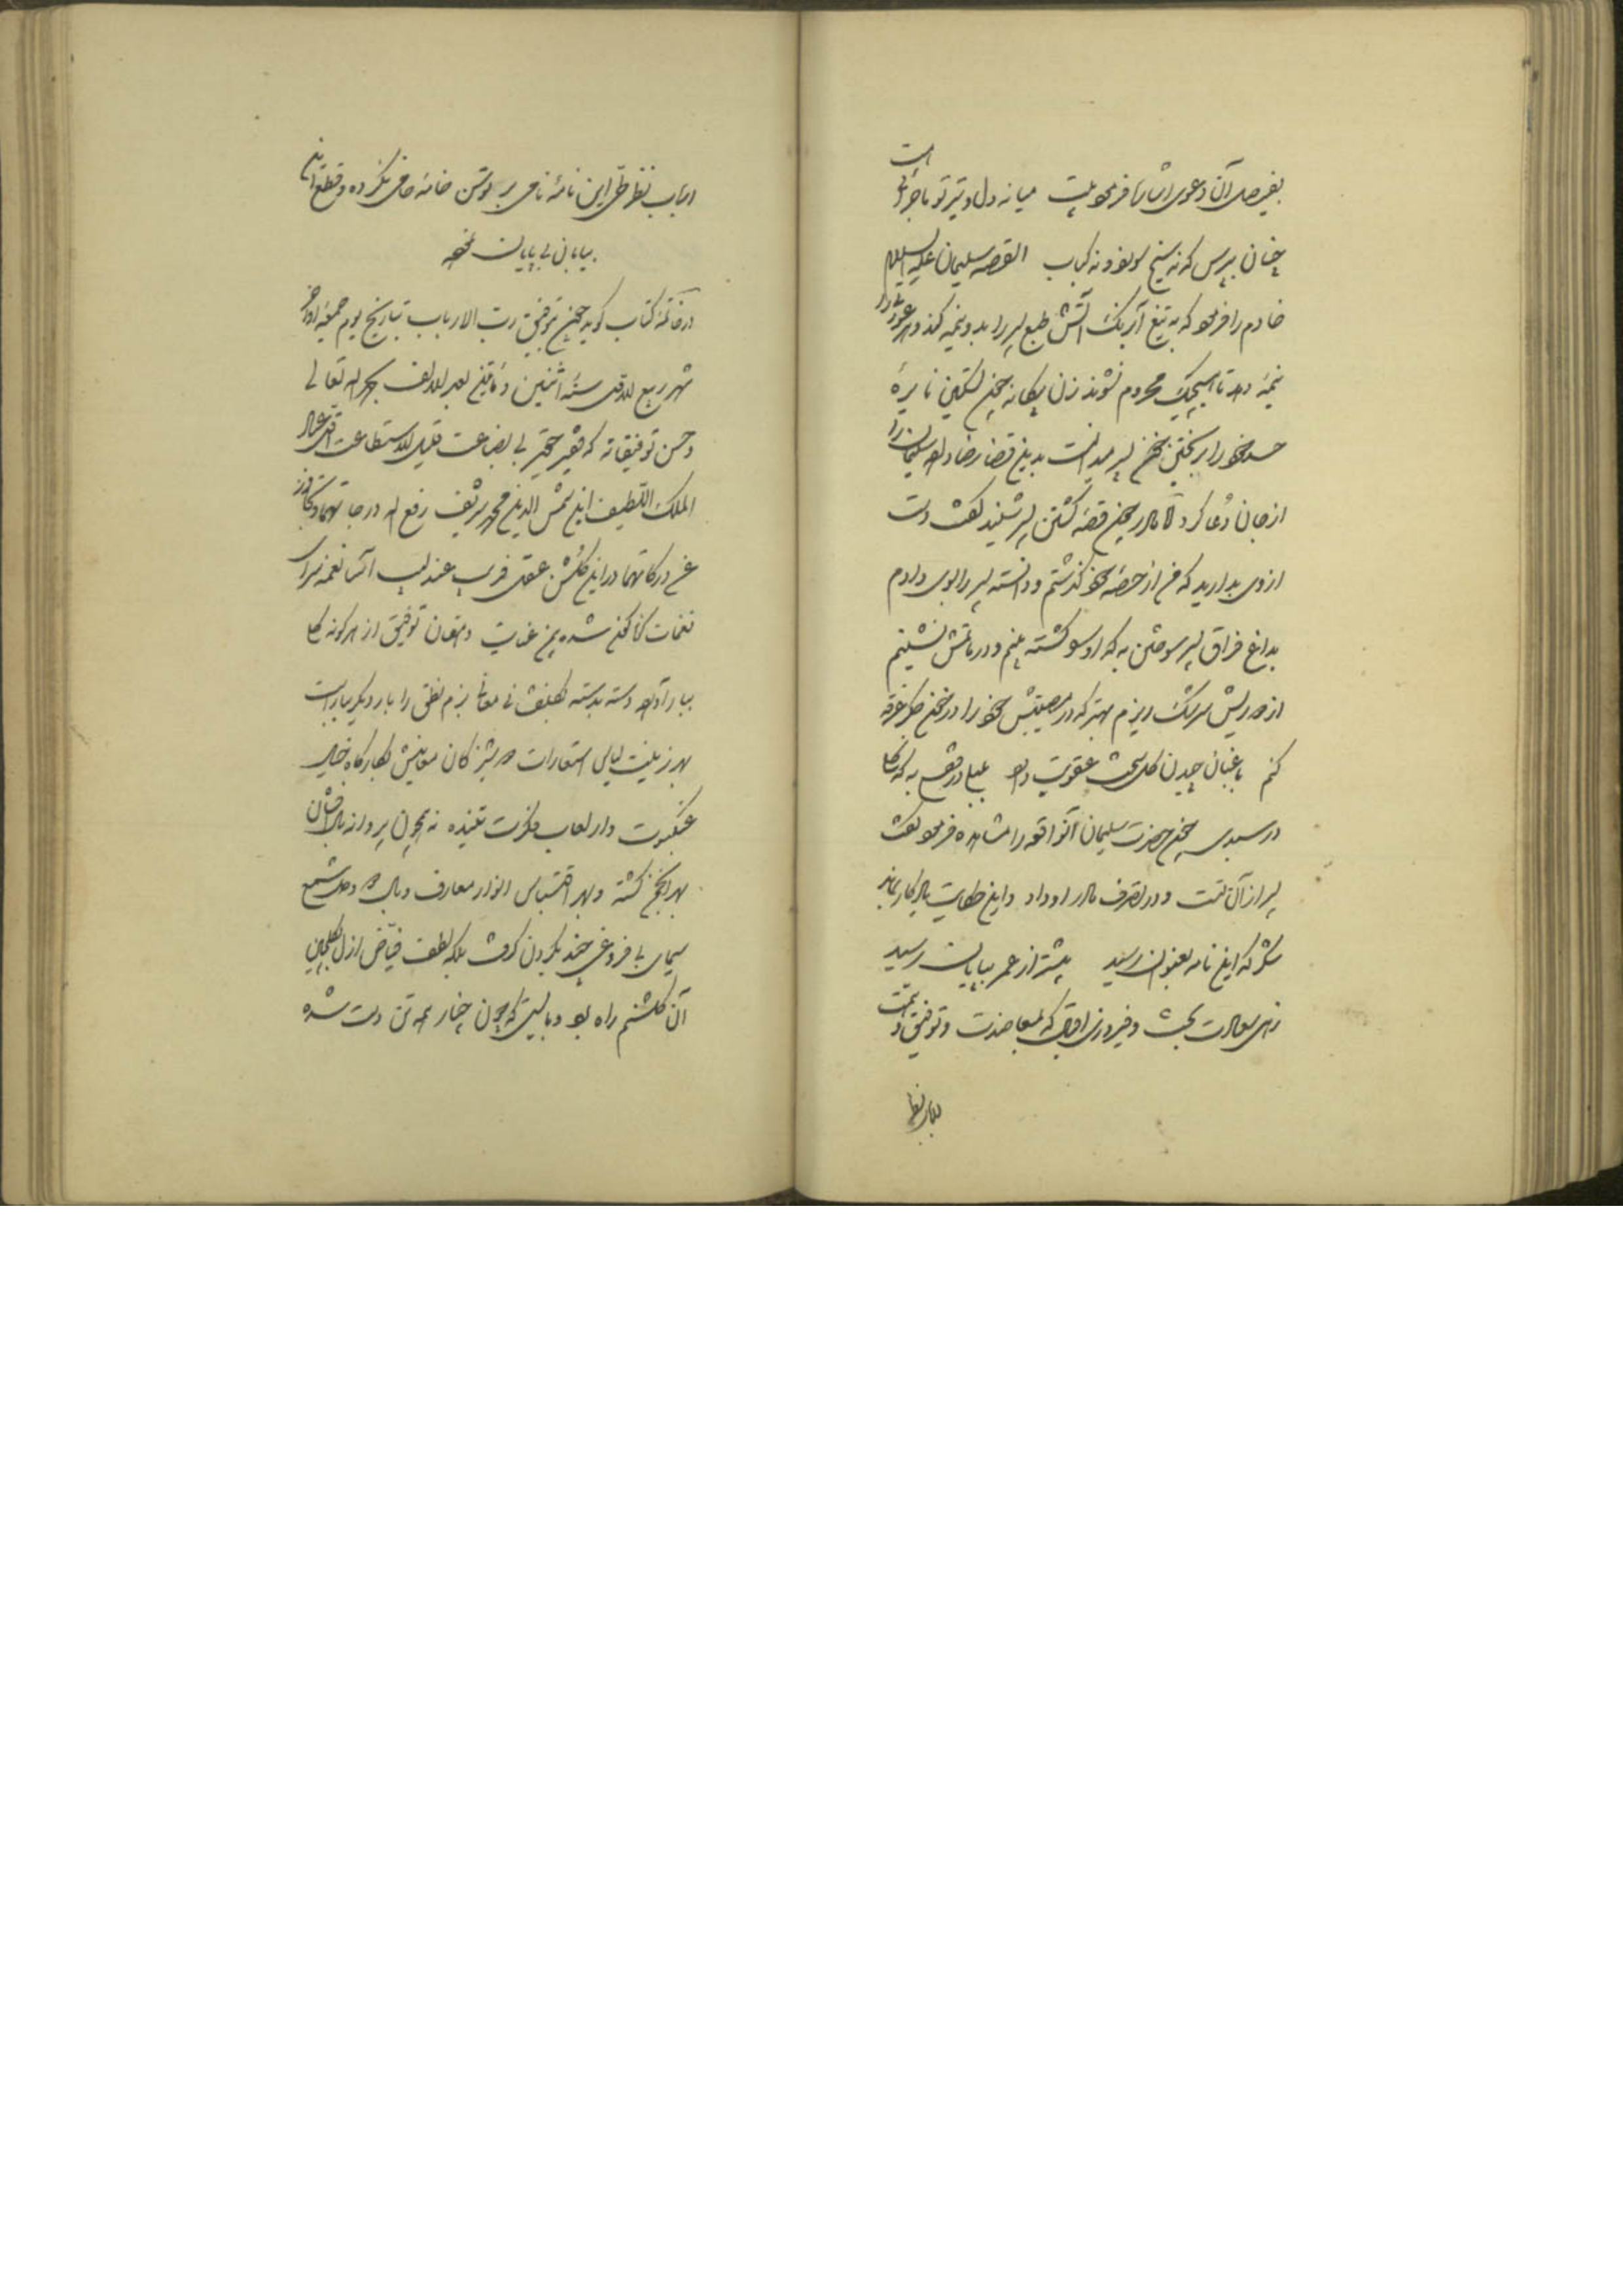 بفیصل آن دعوی اشارتا فرمود بیت میانه دل و تیر تو ماجرائی است
چنان بپرس که نه سیخ سوزد و نه کباب القصه سلیمان علیه السلام
خادم را فرمود که به تیغ آبرنگ آتش طبع پسر را بدو نیمه کند و هر عورت را
نیمهٔ دهد تا هیچیک محروم نشوند زن بیگانه چون تسکین نایرهٔ
حسد خود را بریختن خون پسر میدانست بدین قضا رضا داده سلیمان را
از جان دعا کرد اما مادر چون قصهٔ کشتن پسر شنید گفت دست
از وی بدارید که من از حصهٔ خود گذشتم و دانسته پسر را بوی دادم
بداغ فراق پسر سوختن به که او را کشته بینم و در ماتمش نشینم
از دوریش سرشک ریزم بهتر که در مصیبتش خود را در خون جگر غرقه
کنم باغبان چیدن گل سخت عقوبت دارد به که گل
در سبدی چون حضرت سلیمان آنواقعه را مشاهده فرمود گفت
پسر از آن تست و در تصرف مادر او داد و این حکایت یادگار بماند
شکر که این نامه بعنوان رسید پیشتر از عمر بپایان رسید
زهی سعادت بخت و فیروزی اقبال که بمعاضدت توفیق و همت
ارباب نظر
ارباب نظر طی این نامهٔ نامی بر توسن خامهٔ خامی نکرده و قطع این
بیابان بی پایان نموده
در خاتمهٔ کتاب گوید چون بتوفیق رب الارباب بتاریخ یوم جمعه اواخر
شهر ربیع الاول سنه اثنین و مأتین بعد الالف بحمد الله تعالی
و حسن توفیقاته که فقیر حقیر بی بضاعت قلیل الاستطاعت اقل عباد
الملک اللطیف ابن شمس الدین محمد شریف رفع الله درجاتهما و تجاوز
عن درکاتهما در این گلشن عقل فریب عندلیب آسا نغمه سرای
نغمات گوناگون شده بمن عنایت دهقان توفیق از هر گونه گل
ببار آورده دسته بدسته بزم نطق را بار دیگر بیاراست
بهر زینت لیالی استعارات
عنکبوت وار لعاب فکرت تنیده نه همچون پروانه بال افشان
بهر انجمن گشته و بهر اقتباس انوار معارف وصل شمع
سیمای بی فروغی چند بگردن گرفت بلکه لطف فیاض ازل گلچین
آن گلشنم راه بود و بایستی که چون چنار همه تن دست شده